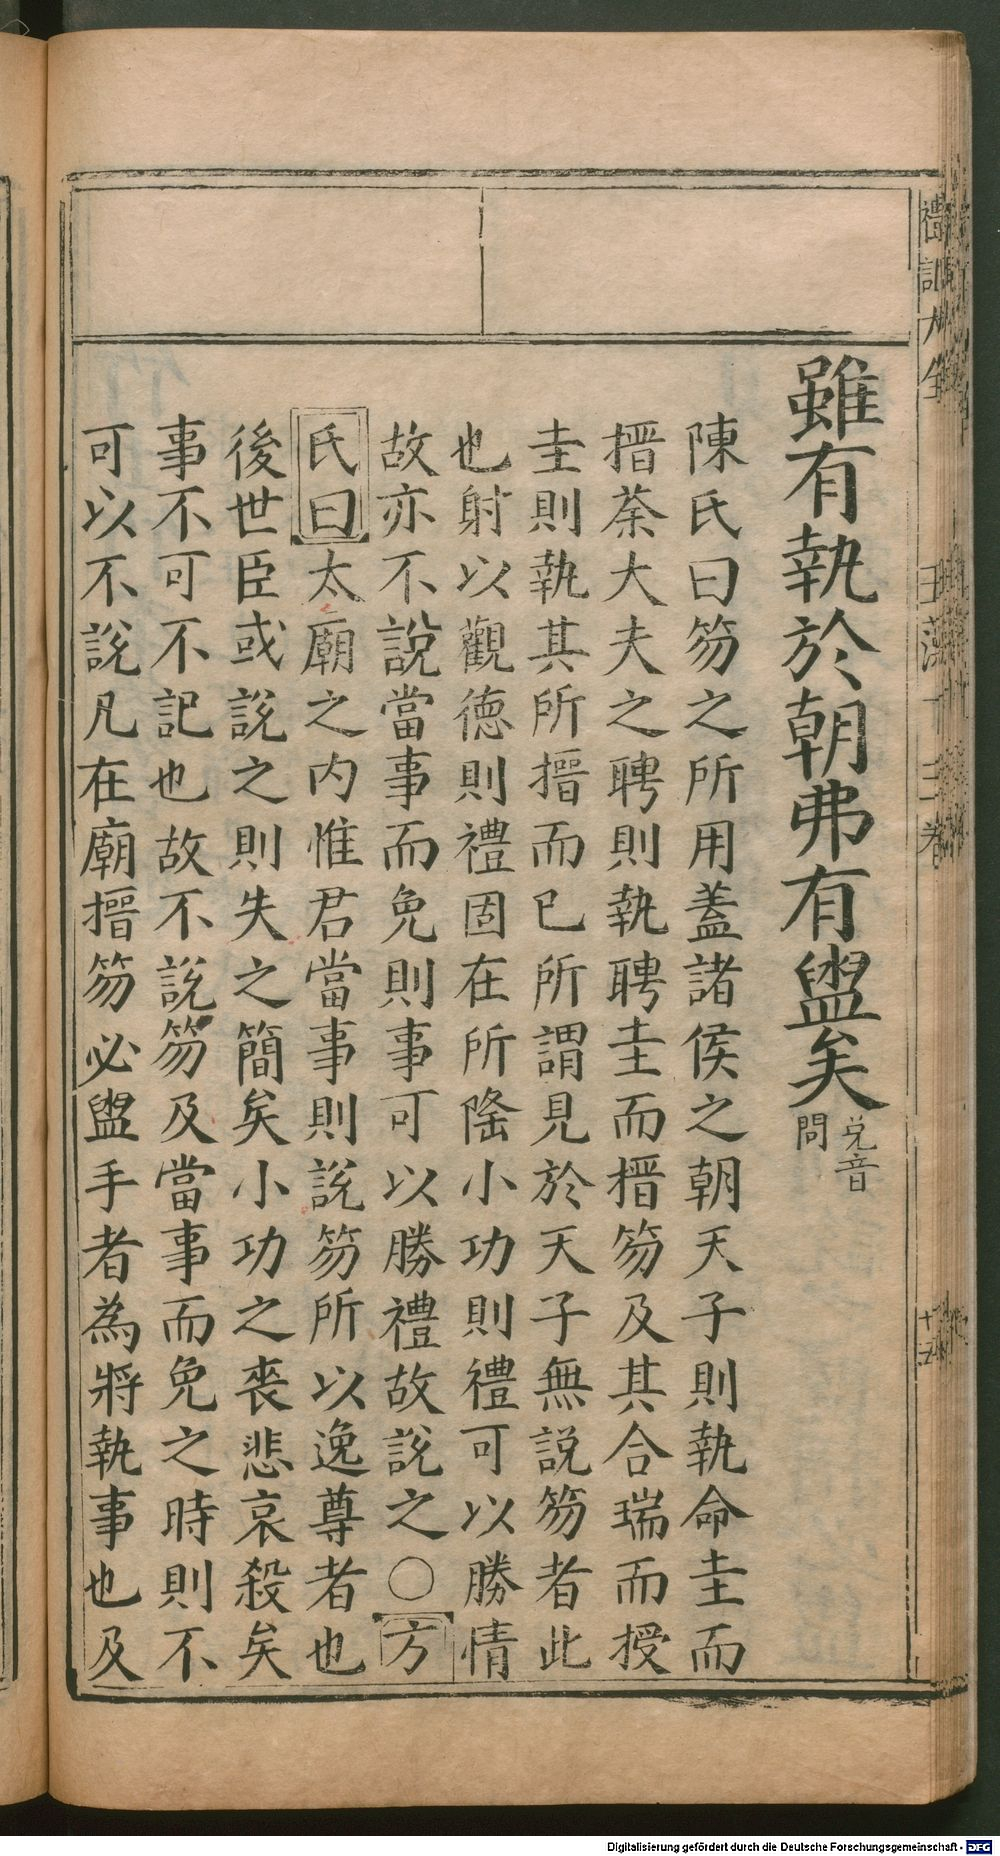 雖有執於朝弗有盥矣
免音
問
陳氏曰笏之所用蓋諸侯之朝天子則執命圭而
搢荼大夫之聘則執聘圭而搢笏及其合瑞而授
圭則執其所搢而已所謂見於天子無説笏者此
也射以觀德則禮固在所隆小功則禮可以勝情
故亦不說當事而免則事可以勝禮故説之○方
氏曰太廟之内惟君當事則説笏所以逸尊者也
後世臣或説之則失之簡矣小功之喪悲哀殺矣
事不可不記也故不説笏及當事而免之時則不
可以不説凡在廟搢笏必盥手者為將執事也及
玉藻十三卷
十五
Digitalisierung gefördert durch die Deutsche Forschungsgemeinschaft - DFG